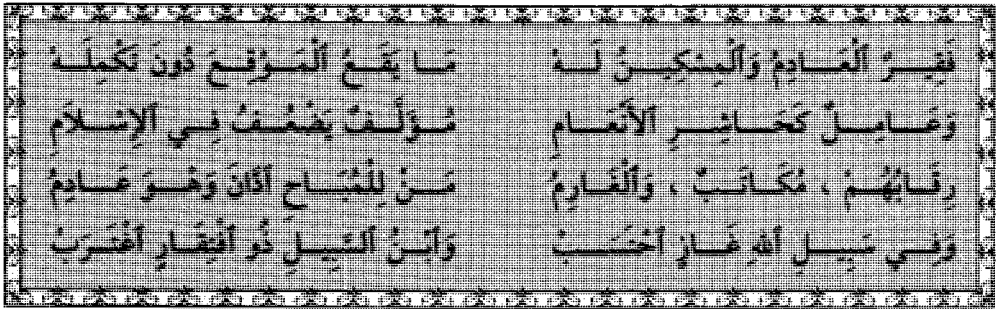 فَقِيرٌ ٱلْعَادِمُ وَٱلْمِسْكِينُ لَهُ مَا يَقَعُ ٱلْمَوْقِعَ دُونَ تَكْمِلَهْ
وَعَامِلٌ كَحَاشِرِ ٱلأَنْعَامِ مُؤَلَّفٌ يَضْعُفُ فِي ٱلإِسْلاَمِ
رِقَابُهُمْ ، مُكَاتَبٌ ، وَٱلْغَارِمُ مَنْ لِلْمُبَاحِ ٱدَّانَ وَهْوَ عَادِمُ
وَفِي سَبِيلِ ٱللهِ غَازٍ ٱحْتَسَبْ وَٱبْنُ ٱلسَّبِيلِ ذُو ٱفْتِقَارٍ ٱغْتَرَبْ